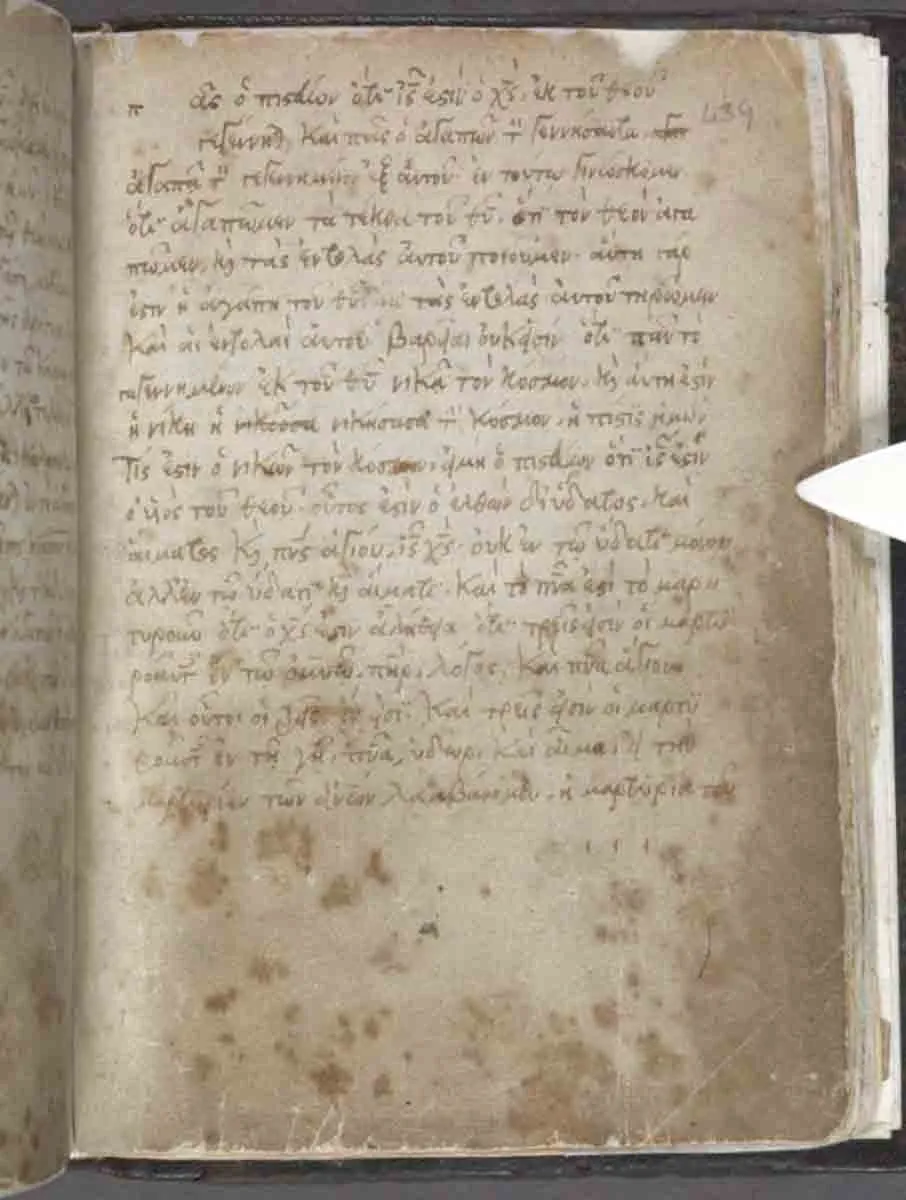 π ᾶς ὁ πιστεύων ὅτι ἰς ἐστιν ὁ χς, ἐκ τοῦ θεοῦ 439
γεγέννηται, καὶ πᾶς ὁ ἀγαπῶν τὸν γεννήσαντα
ἀγαπᾷ τὸν γεγεννημένον ἐξ αὐτοῦ· ἐν τούτω γινώσκομεν
ὅτι ἀγαπῶμεν τὰ τέκνα τοῦ θυ, ὅταν τὸν θεὸν ἀγα
πῶμεν, καὶ τὰς ἐντολὰς αὐτοῦ ποιοῦμεν· αὕτη γάρ
ἐστιν ἡ ἀγάπη τοῦ θυ τὰς ἐντολὰς αὐτοῦ τηρῶμεν
καὶ αἱ ἐντολαὶ αὐτοῦ βαρεῖαι οὐκ εἰσίν ὅτι πᾶν τὸ
γεγεννημένον ἐκ τοῦ θυ νικᾶ τὸν κόσμον, καὶ αὕτη ἐστὶν
ἡ νίκη ἡ νικήσασα τὸν κόσμον, ἡ πίστις ἡμῶν
Τίς ἐστιν ὁ νικῶν τὸν κόσμον, εἰ μὴ ὁ πιστεύων ὅτι ἰς ἐστὶν
ὁ υἱὸς τοῦ θεοῦ· οὗτος ἐστὶν ὁ ἐλθὼν δι ὕδατος, καὶ
αἵματος καὶ πνς ἁγίου, ἰς χς· οὐκ ἐν τῶ ὕδατι μόνον
ἀλλ ἐν τῶ ὕδατι καὶ αἵματι· καὶ τὸ πνα ἐστὶ τὸ μαρτυ
τυροῦν ὅτι ὁ χς ἐστιν ἀλήθεια ὅτι τρεῖς εἰσὶν οἱ μαρτυ
ροῦντες ἐν τῶ οὐνω, πηρ, λόγος, καὶ πνα ἅγιον
καὶ οὗτοι οἱ τρεῖς ἕν εἰσι· καὶ τρεῖς εἰσὶν οἱ μαρτυ
ροῦντες ἐν τῆ γῆ, πνα, ὕδωρ, καὶ αἷμα, εἰ τὴν
μαρτυρίαν τῶν ἀνων λαμβάνομεν, ἡ μαρτυρία τοῦ